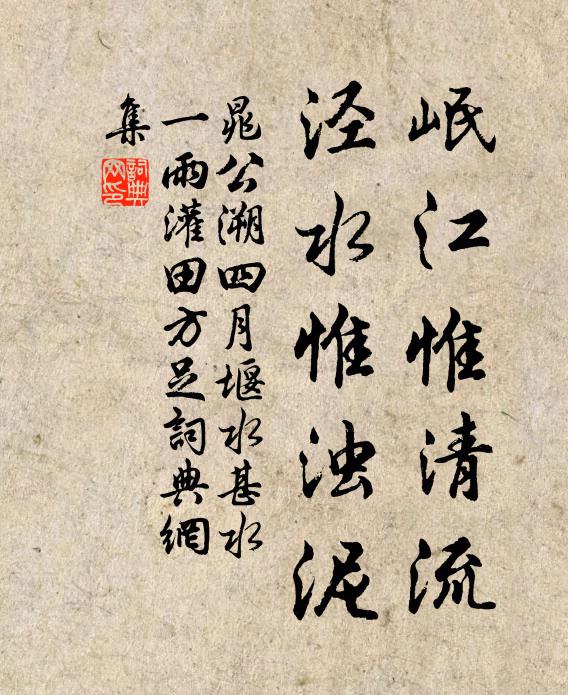 岷江惟清流
泾水惟浊泥
晁公溯四月堰水甚水
一雨灌田方足詞典網
集
詞典网印